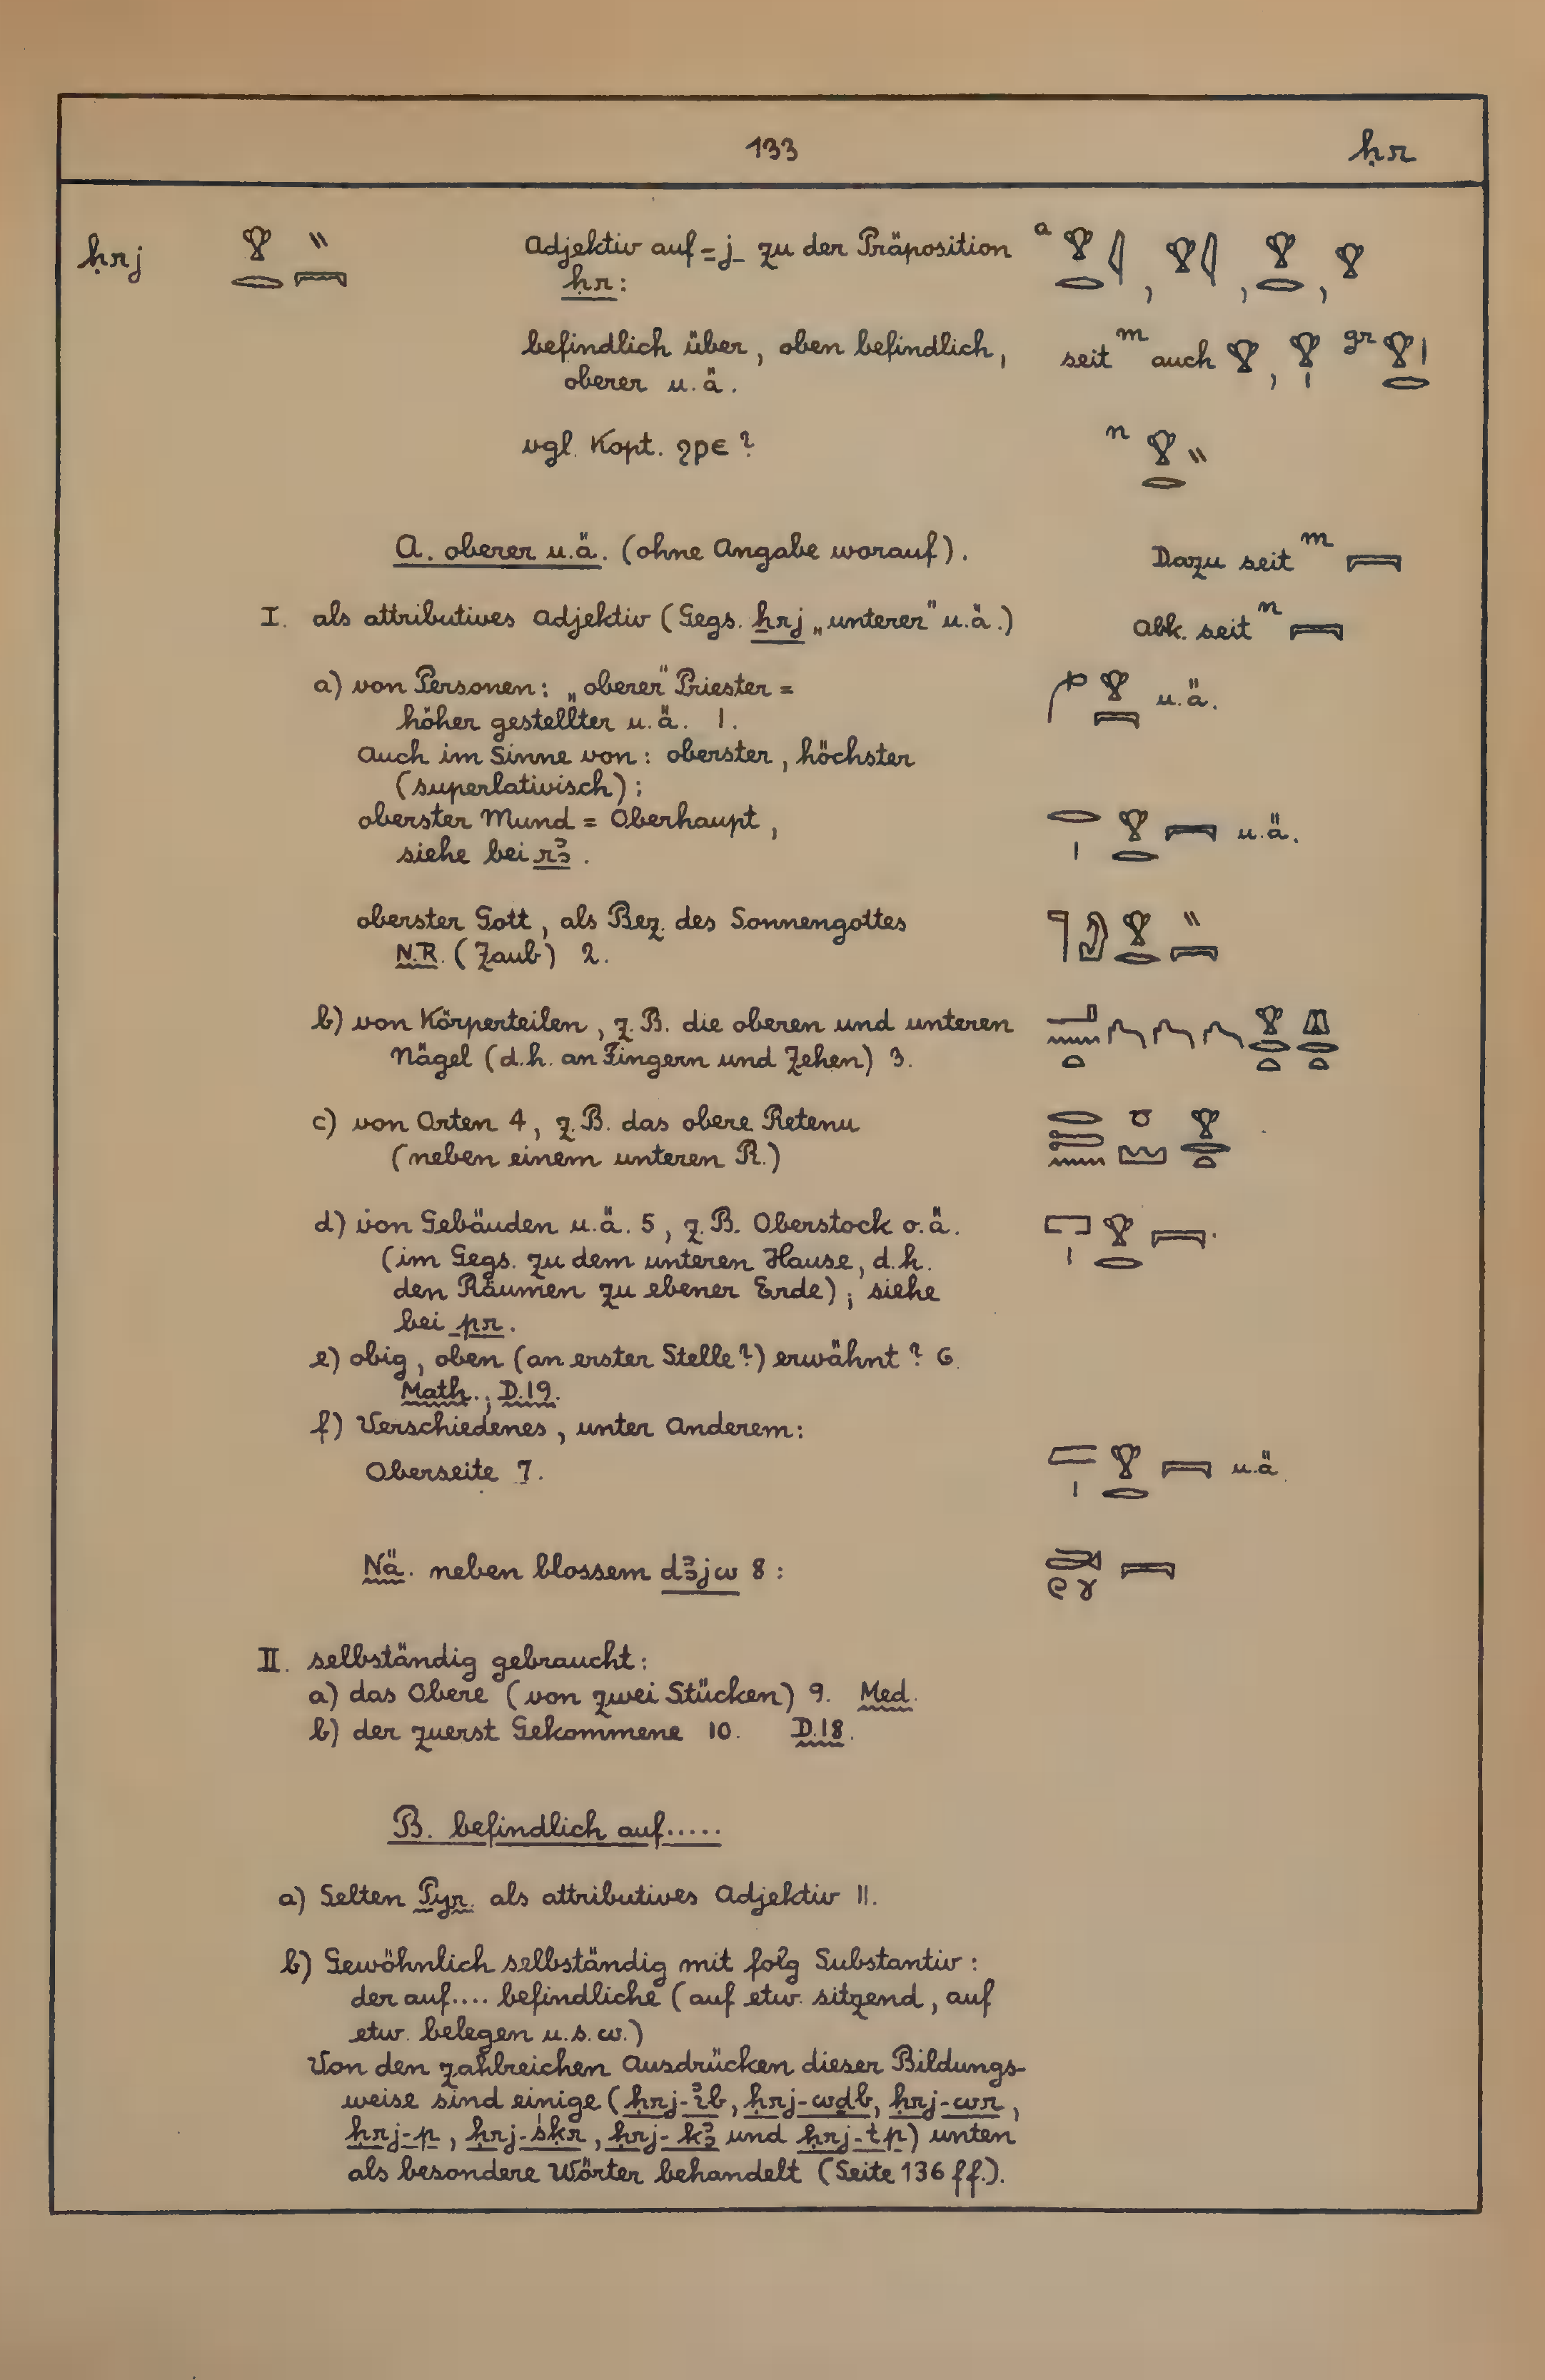 133 ḥr
ḥrj Adjektiv auf =j zu der Präposition a , , ,
ḥr:
befindlich über, oben befindlich, seit m auch , gr
oberer u.ä.
vgl. Kopt. ϩⲣⲉ ? n
A. oberer u.ä. (ohne Angabe worauf). Dazu seit m
I. als attributives Adjektiv (Gegs. ẖrj „unterer" u.ä.) Abk. seit n
a) von Personen: „oberer" Priester = u.ä.
höher gestellter u.ä. 1.
Auch im Sinne von: oberster, höchster
(superlativisch):
oberster Mund = Oberhaupt, u.ä.
siehe bei rꜣ.
oberster Gott, als Bez. des Sonnengottes
N.R. (Zaub) 2.
b) von Körperteilen, z.B. die oberen und unteren
Nägel (d.h. an Fingern und Zehen) 3.
c) von Orten 4, z.B. das obere Retenu
(neben einem unteren R.)
d) von Gebäuden u.ä. 5, z.B. Oberstock o.ä.
(im Gegs. zu dem unteren Hause, d.h.
den Räumen zu ebener Erde); siehe
bei pr.
e) obig, oben (an erster Stelle?) erwähnt? 6.
Math.; D.19.
f) Verschiedenes, unter Anderem:
Oberseite 7. u.ä.
Nä. neben blossem dꜣjw 8:
II. selbständig gebraucht:
a) das Obere (von zwei Stücken) 9. Med.
b) der zuerst Gekommene 10. D.18.
B. befindlich auf.....
a) Selten Pyr. als attributives Adjektiv 11.
b) Gewöhnlich selbständig mit folg Substantiv:
der auf.... befindliche (auf etw. sitzend, auf
etw. belegen u.s.w.)
Von den zahlreichen Ausdrücken dieser Bildungs-
weise sind einige (ḥrj-ꞽb, ḥrj-wḏb, ḥrj-wr,
ḥrj-p, ḥrj-śḳr, ḥrj-kꜣ und ḥrj-tp) unten
als besondere Wörter behandelt (Seite 136 ff.).